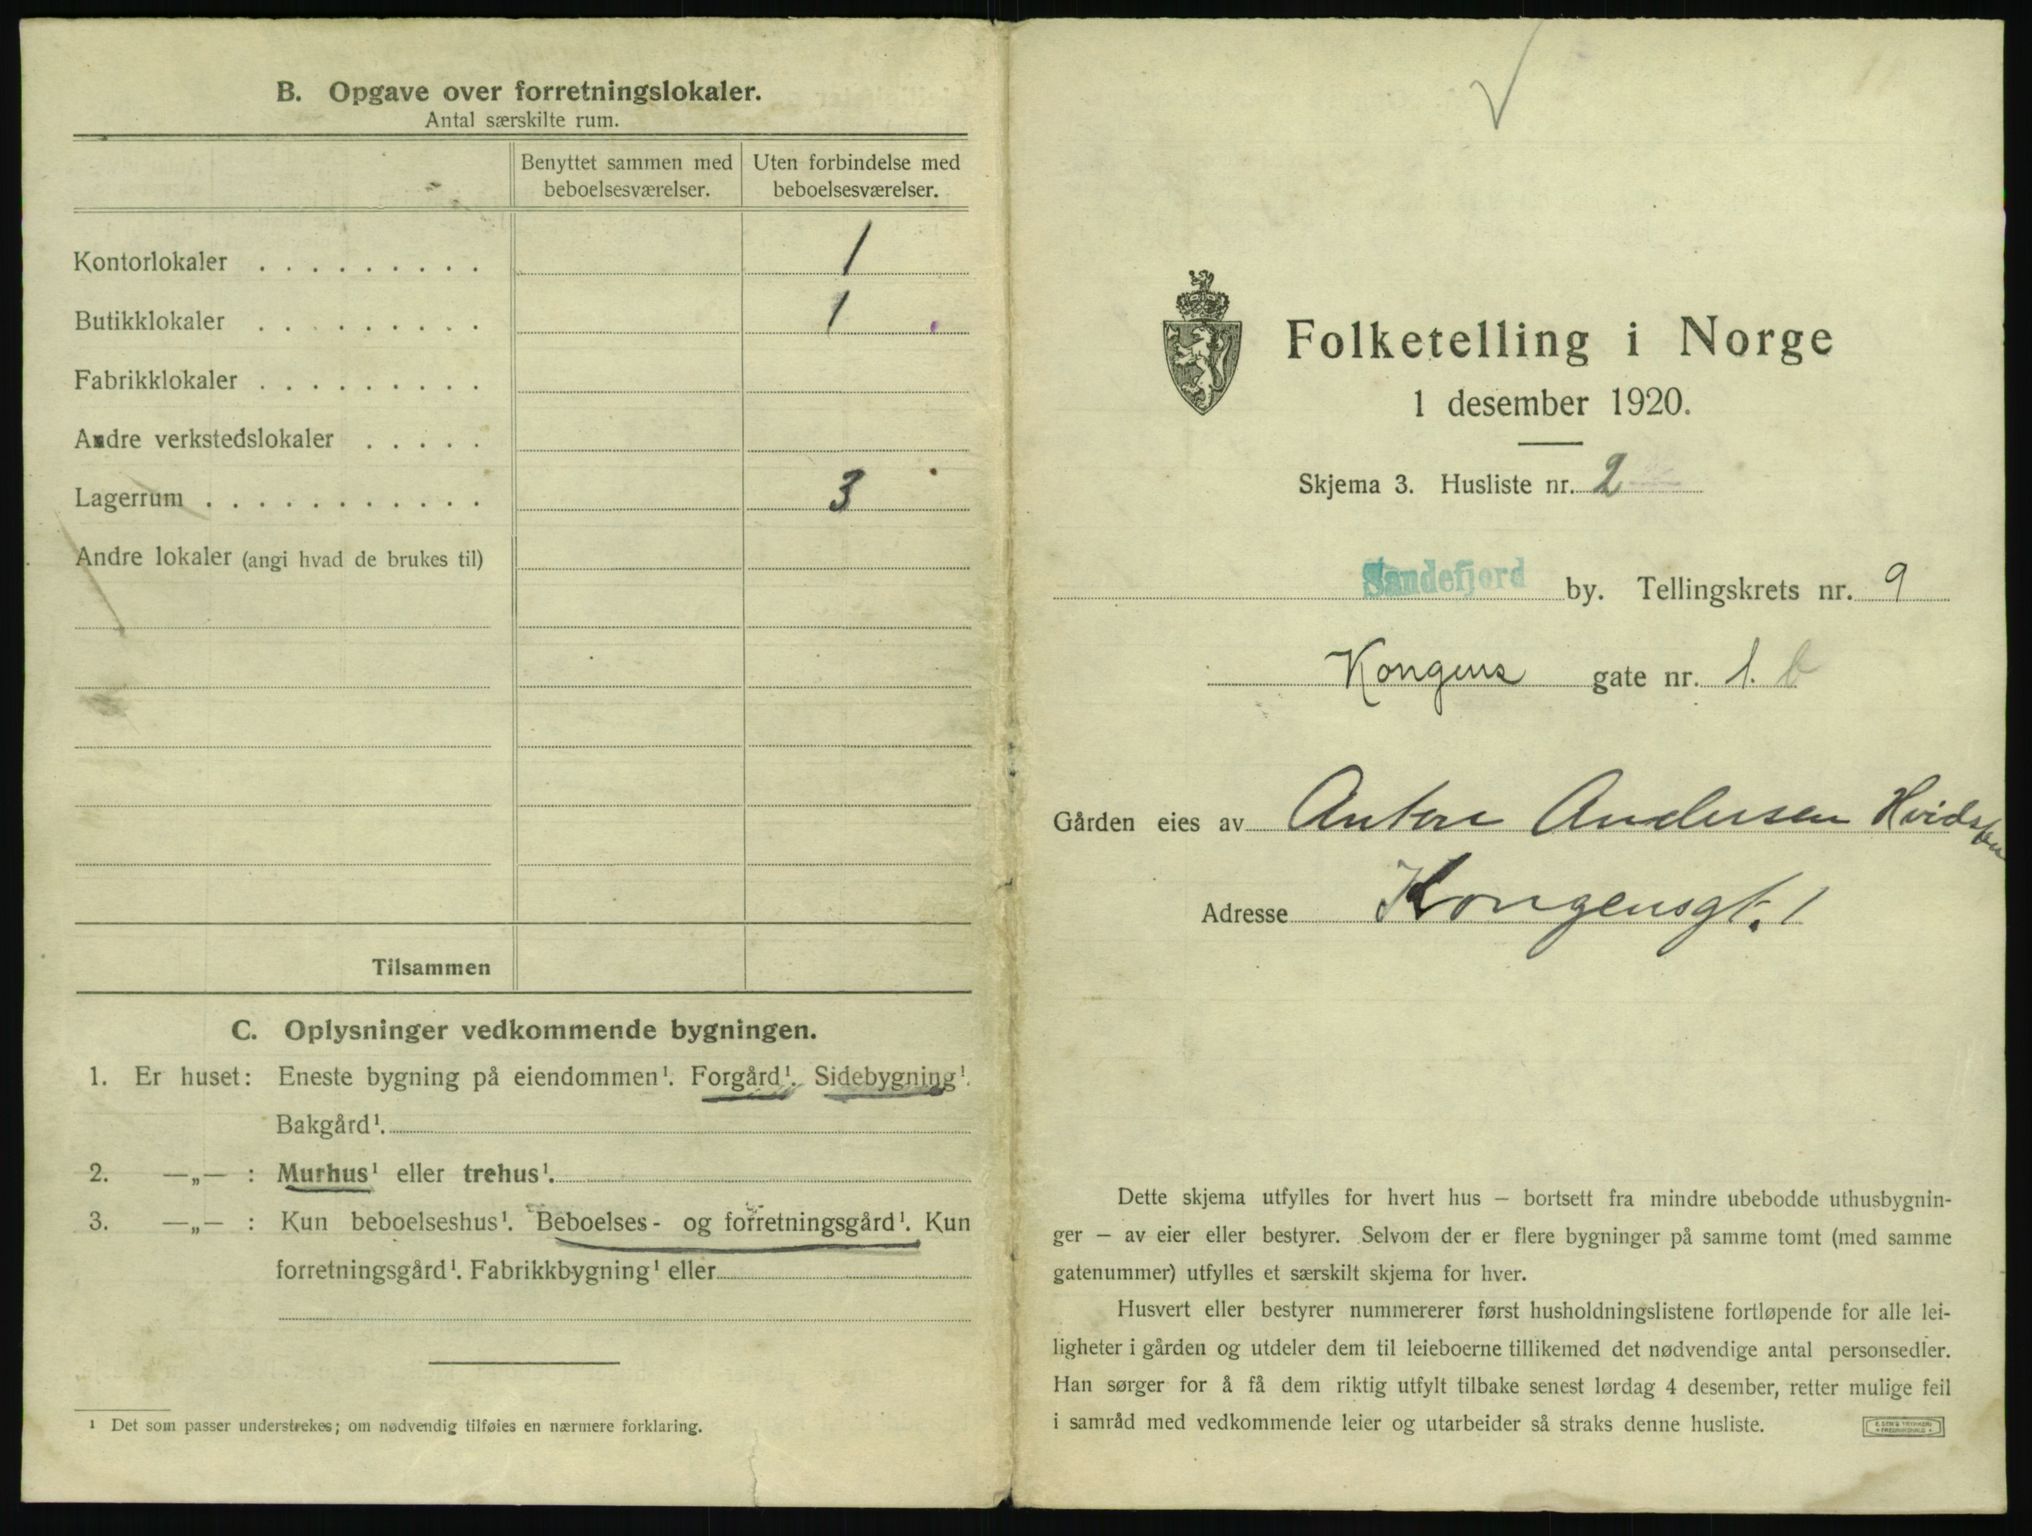 B. Opgave over forretningslokaler.
Antal særskilte rum.
Benyttet sammen med beboelsesværelser.
Uten forbindelse med beboelsesværelser.
Kontorlokaler . . . . . . . . . 1
Butikklokaler . . . . . . . . . 1
Fabrikklokaler . . . . . . . . .
Andre verkstedslokaler . . . . .
Lagerrum . . . . . . . . . . . 3
Andre lokaler (angi hvad de brukes til)
Tilsammen
C. Oplysninger vedkommende bygningen.
1. Er huset: Eneste bygning på eiendommen¹. Forgård¹. Sidebygning¹.
Bakgård¹.
2. —„— : Murhus¹ eller trehus¹.
3. —„— : Kun beboelseshus¹. Beboelses- og forretningsgård¹. Kun
forretningsgård¹. Fabrikkbygning¹ eller
¹ Det som passer understrekes; om nødvendig tilføies en nærmere forklaring.
Folketelling i Norge
1 desember 1920.
Skjema 3. Husliste nr. 2
Sandefjord by. Tellingskrets nr. 9
Kongens gate nr. 1. b
Gården eies av Anton Andersen
Adresse Kongensgt. 1
Dette skjema utfylles for hvert hus – bortsett fra mindre ubebodde uthusbygnin-
ger – av eier eller bestyrer. Selvom der er flere bygninger på samme tomt (med samme
gatenummer) utfylles et særskilt skjema for hver.
Husvert eller bestyrer nummererer først husholdningslistene fortløpende for alle lei-
ligheter i gården og utdeler dem til leieboerne tillikemed det nødvendige antal personsedler.
Han sørger for å få dem riktig utfylt tilbake senest lørdag 4 desember, retter mulige feil
i samråd med vedkommende leier og utarbeider så straks denne husliste.